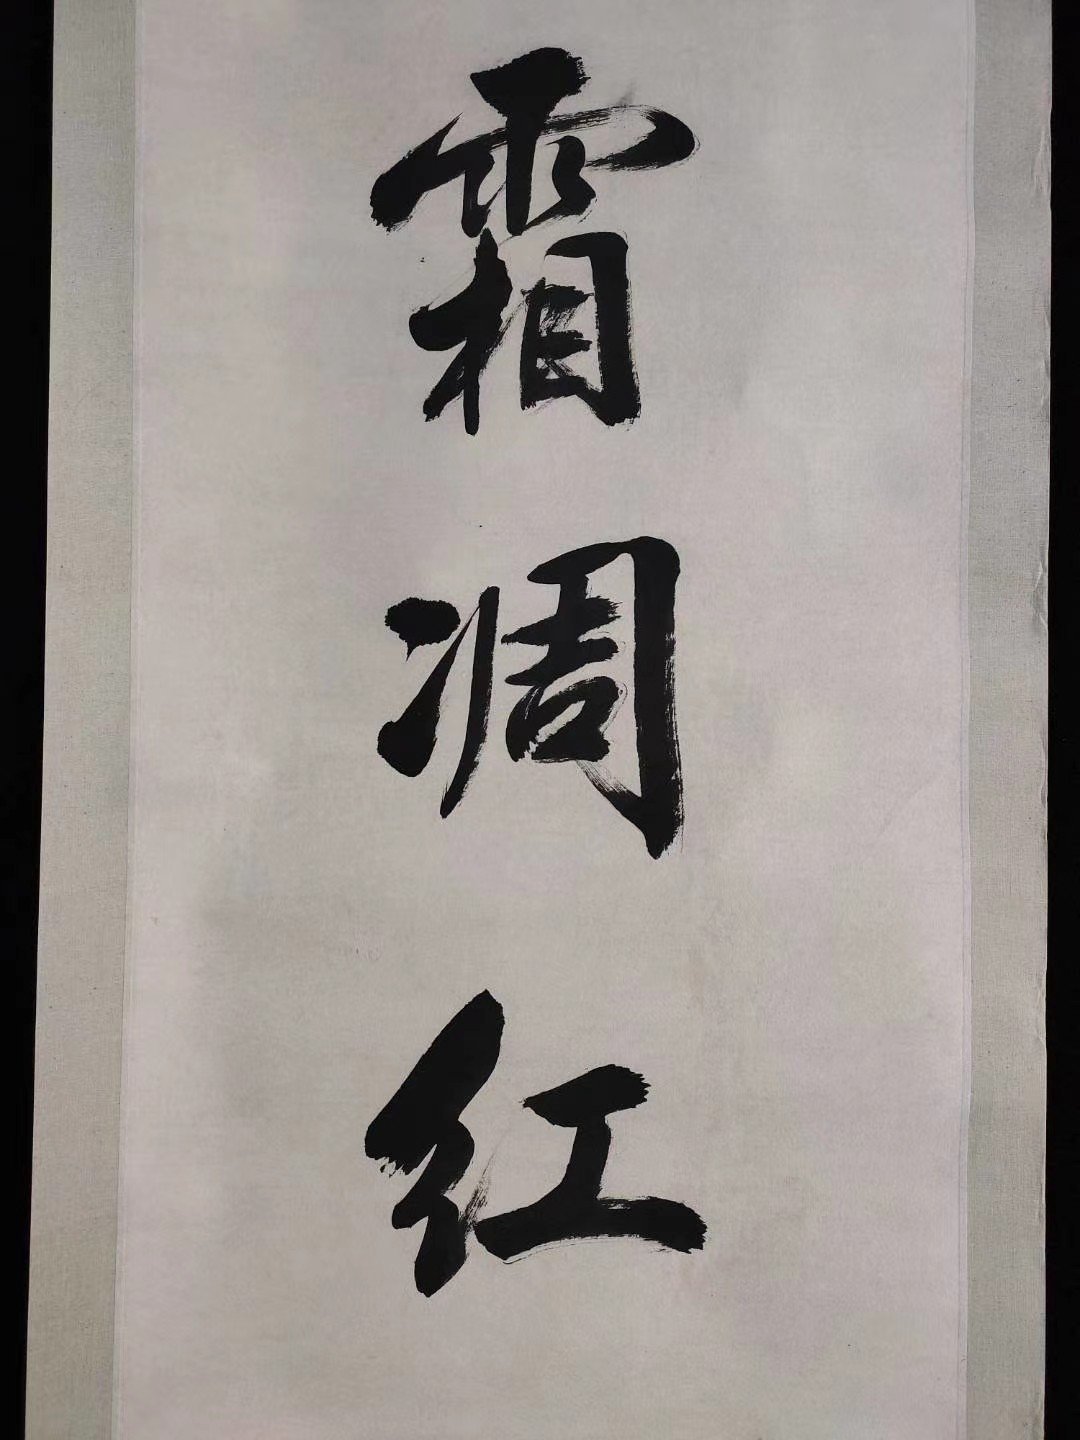 霜凋红